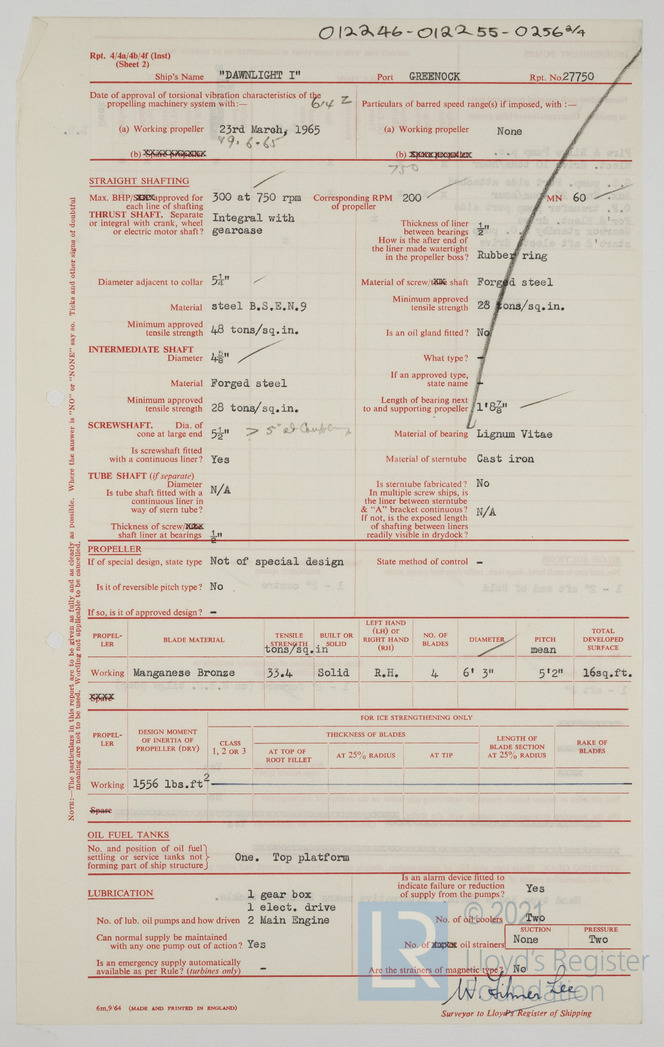 012246-012255-0256 2/4
Rpt. 4/4a/4b/4f (Inst)
(Sheet 2)
Ship's Name "DAWNLIGHT I" Port GREENOCK Rpt. No. 27750
Date of approval of torsional vibration characteristics of the
propelling machinery system with:—
Particulars of barred speed range(s) if imposed, with :—
(a) Working propeller 23rd March, 1965 (a) Working propeller None
(b) (b)
750
STRAIGHT SHAFTING
Max. BHP/ approved for
each line of shafting 300 at 750 rpm
Corresponding RPM
of propeller 200
MN 60
THRUST SHAFT. Separate
or integral with crank, wheel
or electric motor shaft? Integral with
gearcase
Thickness of liner
between bearings ½"
How is the after end of
the liner made watertight
in the propeller boss? Rubber ring
Diameter adjacent to collar 5¼"
Material of screw/ shaft Forged steel
Material steel B.S.E.N.9
Minimum approved
tensile strength 28 tons/sq.in.
Minimum approved
tensile strength 48 tons/sq.in.
Is an oil gland fitted? No
INTERMEDIATE SHAFT
Diameter 4⅝"
What type? -
If an approved type,
state name -
Material Forged steel
Minimum approved
tensile strength 28 tons/sq.in.
Length of bearing next
to and supporting propeller 1'8⅞"
SCREWSHAFT. Dia. of
cone at large end 5½" > 5" at Coupling
Material of bearing Lignum Vitae
Is screwshaft fitted
with a continuous liner? Yes
Material of sterntube Cast iron
TUBE SHAFT (if separate)
Diameter
Is tube shaft fitted with a
continuous liner in
way of stern tube? N/A
Is sterntube fabricated? No
In multiple screw ships, is
the liner between sterntube
& "A" bracket continuous?
If not, is the exposed length
of shafting between liners
readily visible in drydock? N/A
Thickness of screw/
shaft liner at bearings ½"
PROPELLER
If of special design, state type Not of special design State method of control -
Is it of reversible pitch type? No
If so, is it of approved design? -
PROPEL-
LER
BLADE MATERIAL
TENSILE
STRENGTH
tons/sq.in
BUILT OR
SOLID
LEFT HAND
(LH) OR
RIGHT HAND
(RH)
NO. OF
BLADES
DIAMETER
PITCH
mean
TOTAL
DEVELOPED
SURFACE
Working Manganese Bronze 33.4 Solid R.H. 4 6' 3" 5'2" 16sq.ft.
Spare
FOR ICE STRENGTHENING ONLY
PROPEL-
LER
DESIGN MOMENT
OF INERTIA OF
PROPELLER (DRY)
CLASS
1, 2 OR 3
THICKNESS OF BLADES
AT TOP OF
ROOT FILLET
AT 25% RADIUS
AT TIP
LENGTH OF
BLADE SECTION
AT 25% RADIUS
RAKE OF
BLADES
Working 1556 lbs.ft²
Spare
OIL FUEL TANKS
No. and position of oil fuel
settling or service tanks not
forming part of ship structure One. Top platform
Is an alarm device fitted to
indicate failure or reduction
of supply from the pumps? Yes
LUBRICATION 1 gear box
1 elect. drive
No. of lub. oil pumps and how driven 2 Main Engine
No. of oil coolers Two
SUCTION PRESSURE
Can normal supply be maintained
with any one pump out of action? Yes
No. of oil strainers None Two
Is an emergency supply automatically
available as per Rule? (turbines only) -
Are the strainers of magnetic type? No
W Filmer Lee
Surveyor to Lloyd's Register of Shipping
6m,9/64 (MADE AND PRINTED IN ENGLAND)
NOTE:—The particulars in this report are to be given as fully and as clearly as possible. Where the answer is "NO" or "NONE" say so. Ticks and other signs of doubtful
meaning are not to be used. Wording not applicable to be cancelled.
© 2021
LR
Lloyd's Register
Foundation